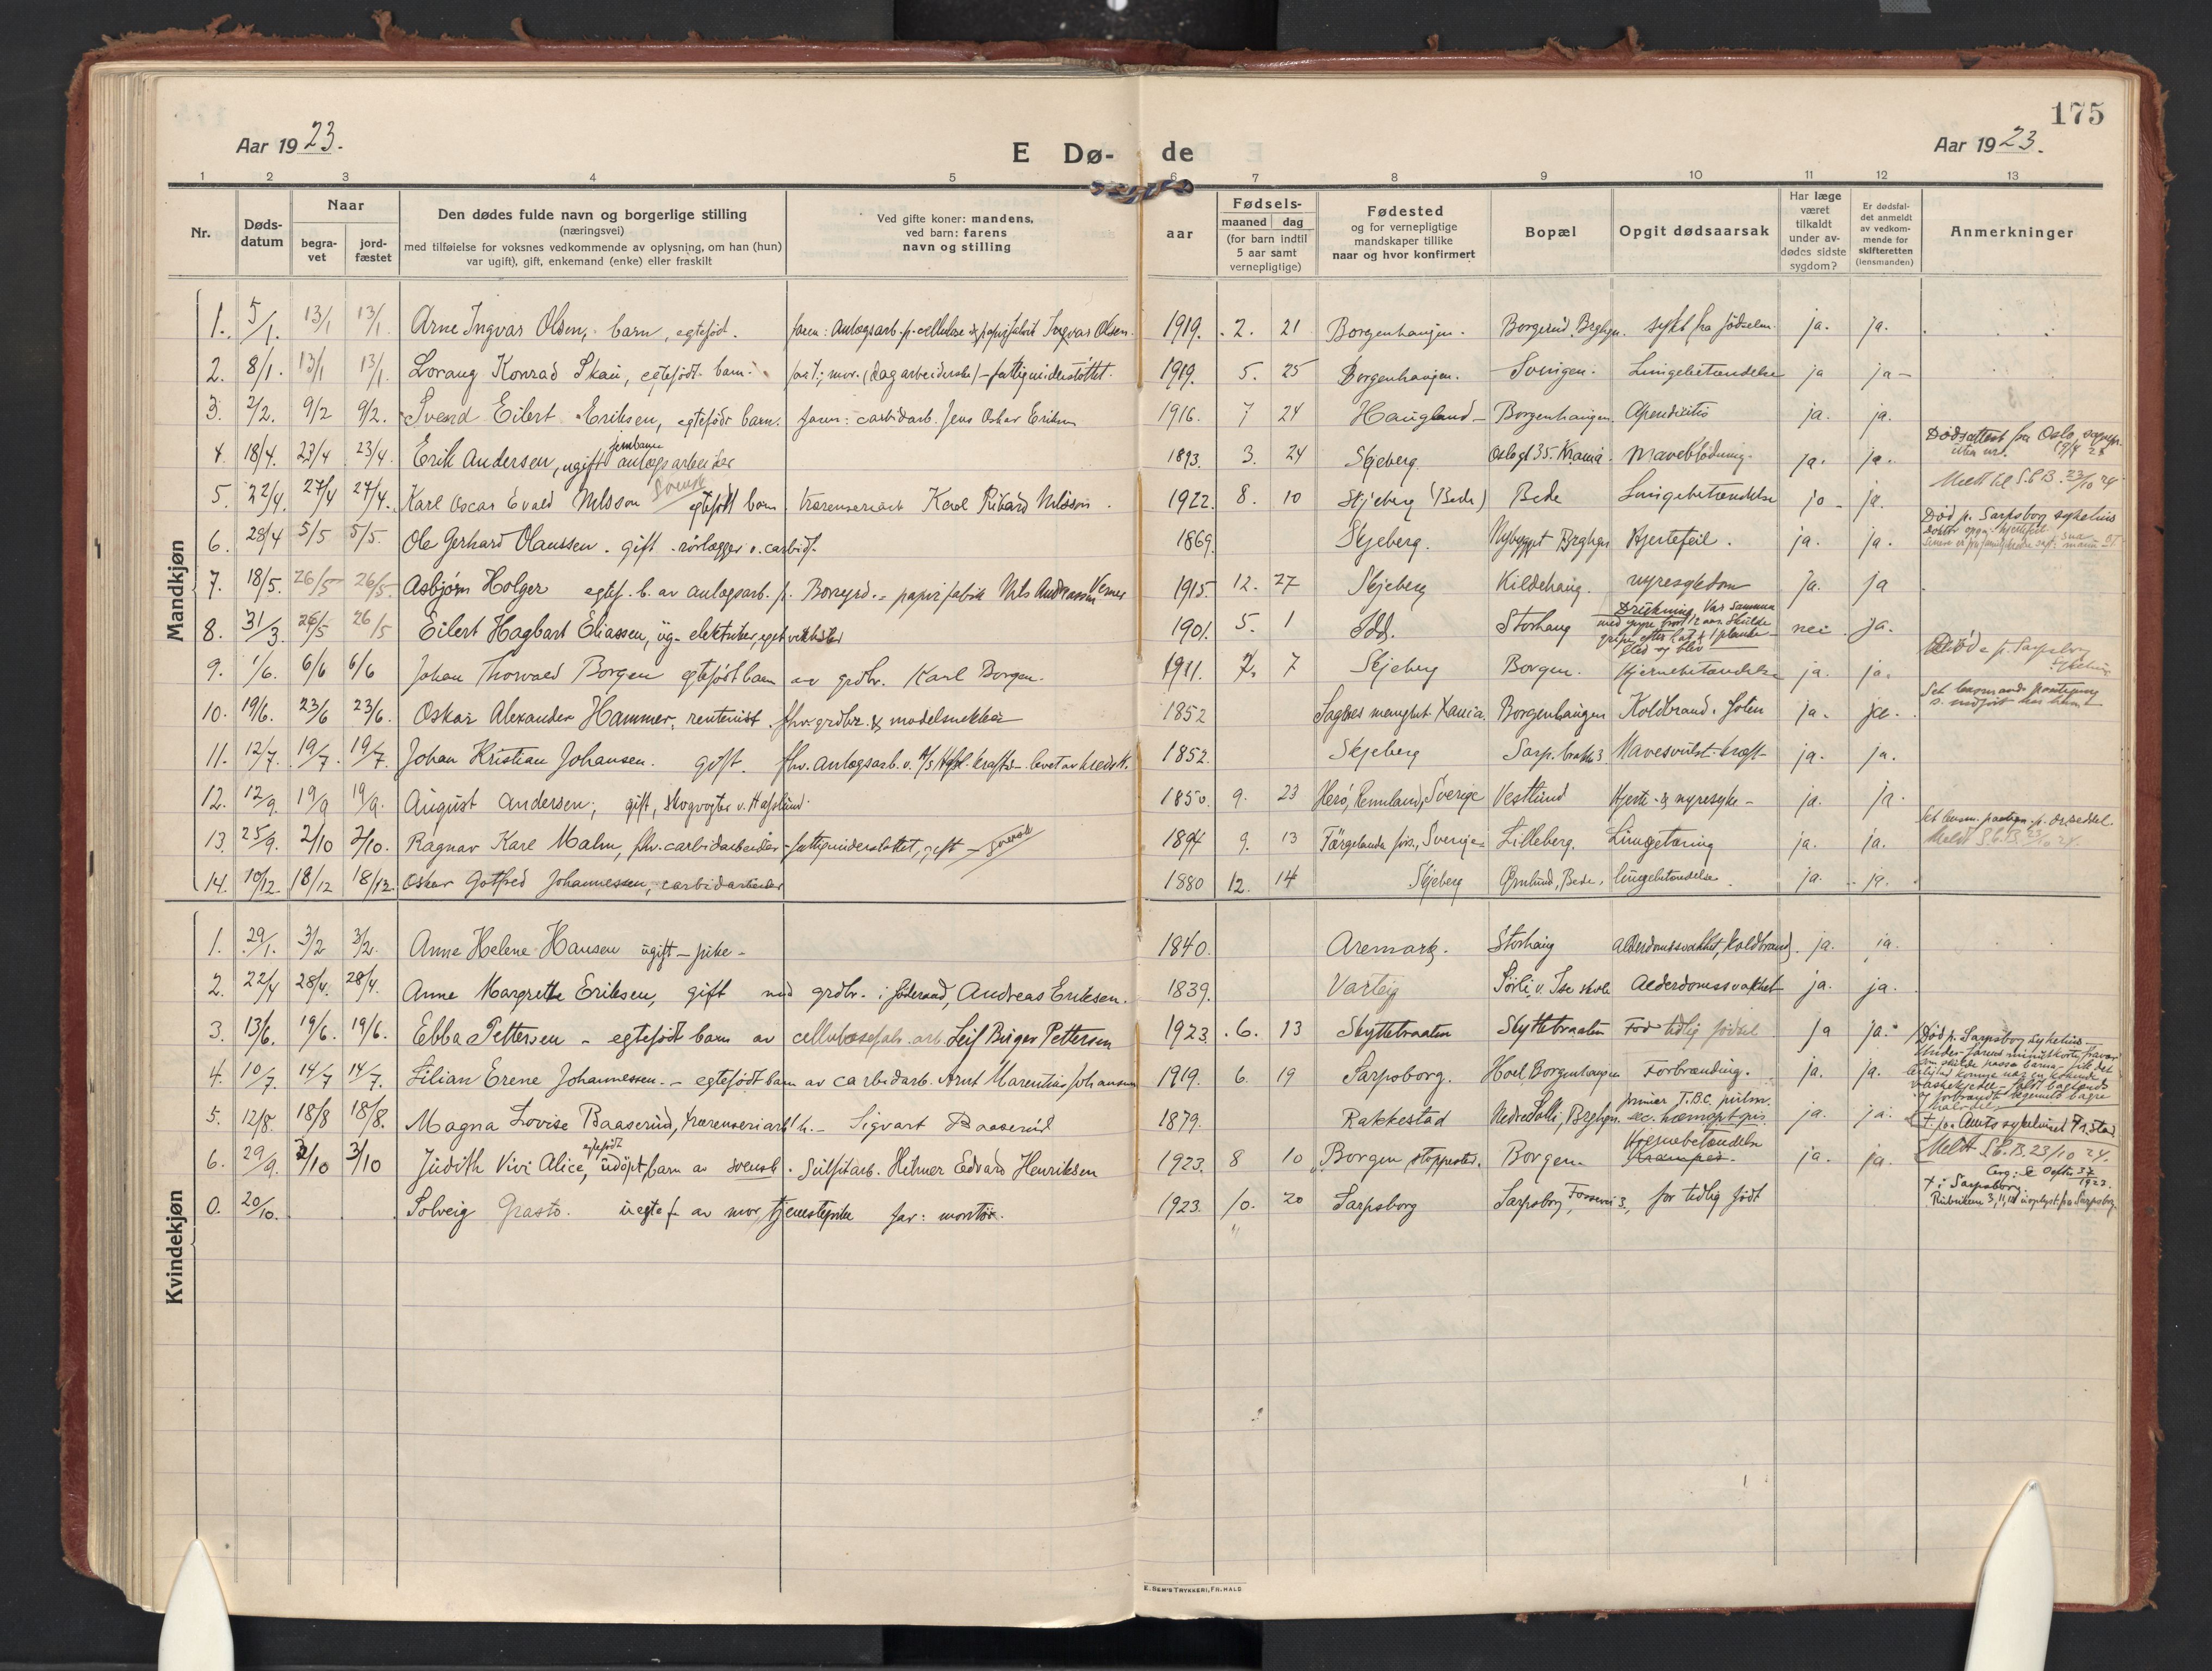 175
Aar 1923.
E Dø- de
Aar 1923.
1 2 3 4 5 6 7 8 9 10 11 12 13
Nr.
Døds-
datum
Naar
begra-
vet
jord-
fæstet
Den dødes fulde navn og borgerlige stilling
(næringsvei)
med tilføielse for voksnes vedkommende av oplysning, om han (hun)
var ugift), gift, enkemand (enke) eller fraskilt
Ved gifte koner: mandens,
ved barn: farens
navn og stilling
Fødsels-
aar
maaned dag
(for barn indtil
5 aar samt
vernepligtige)
Fødested
og for vernepligtige
mandskaper tillike
naar og hvor konfirmert
Bopæl
Opgit dødsaarsak
Har læge
været
tilkaldt
under av-
dødes sidste
sygdom?
Er dødsfal-
det anmeldt
av vedkom-
mende for
skifteretten
(lensmanden)
Anmerkninger
Mandkjøn
1. 5/1. 13/1 13/1 Arne Ingvar Olsen, barn, egtefød. faren: Anlægsarb. p. cellulose & papirfabrik Ingvar Olsen. 1919. 2. 21 Borgenhaugen. Borgerud, Brghgn. sykt fra fødselen. ja. ja.
2. 8/1. 13/1 13/1. Lorang Konrad Skau, egtefødt. barn. mor. (dagarbeiderske) - fattigunderstøttet. 1919. 5. 25 Borgenhaugen. Svingen. Lungebetændelse ja ja-
3. 2/2. 9/2 9/2. Svend Eilert Eriksen, egtefødt barn. faren: carbidarb. Jens Oskar Eriksen 1916. 7 24 Haugland- Borgenhaugen. Apendicitis ja. ja.
4 18/4. 23/4 23/4. Erik Andersen, ugift jernbane anlægsarbeider 1893. 3. 24 Skjeberg Oslogt 35. Krania. Maveblødning. ja. ja. Dødsattest fra Oslo
5. 22/4. 27/4 27/4. Karl Oscar Evald Nilsson Svensk egtefødt barn Karl Rikard Nilsson. 1922. 8. 10 Skjeberg (Bede) Bede Lungebetændelse ja - ja. Meldt til S.C.B. 23/10 24
6. 28/4 5/5 5/5. Ole Gerhard Olaussen. gift. rørlægger v. carbidf. 1869. Skjeberg. Nybygget Brghgn Hjertefeil. ja. ja. Død p. Sarpsborg sykehus
7. 18/5. 26/5 26/5. Asbjørn Holger egtef. b. av anlægsarb. p. Borregrd.s papirfabrik Nils Andreassen Verner 1915. 12. 27 Skjeberg Kildehaug. nyresykdom Ja. ja
8. 31/3. 26/5 26/5 Eilert Hagbart Eliassen, ug. elektriker, eget 1901. 5. 1 Idd. Storhaug Drukning. Var sammen nei ja.
9. 1/6. 6/6 6/6 Johan Thorvald Borgen egtefødt barn av grdbr. Karl Borgen. 1911. 7. 7 Skjeberg Borgen. Hjernebetændelse ja. ja. Døde p. Sarpsborg sykehus
10. 19/6. 23/6 23/6. Oskar Alexander Hammer, rentenist. fhv. grdbr. & modelsnekker 1852 Sagenes menighet Xania. Borgenhaugen Koldbrand i foten ja. ja.
11. 12/7. 19/7. 19/7. Johan Kristian Johansen. gift. fhv. Anlægsarb. v. A/S Hfsl. kraft 1852. Skjeberg Sarp. brakke 3 Mavesvulst - kræft - ja. ja.
12. 12/9. 19/9 19/9. August Andersen, gift, skogvogter v. Hafslund. 1850. 9. 23 Sverige Vestlund Hjerte- & nyresyke - ja. ja.
13. 25/9. 2/10 2/10. Ragnar Karl Malm, fhv. carbidarbeider - fattigunderstøttet, gift - Svensk 1894 9. 13 Färgelanda förs., Sverige Lilleberg. Lungetæring ja. ja. Meldt S.C.B. 23/10 24.
14. 10/12. 18/12 18/12. Oskar Gotfred Johannessen, carbidarbeider 1880 12. 14 Skjeberg Ørnlund, Bede. lungebetændelse. ja. ja.
Kvindekjøn
1. 29/1. 3/2 3/2. Anne Helene Hansen ugift - pike - 1840. Aremark. Storhaug Alderdomssvakhet, Koldbrand. ja. ja.
2. 22/4 28/4. 28/4. Anne Margrethe Eriksen, gift med grdbr. i Andreas Eriksen. 1839. Varteig Sørli, v. Ise skole Alderdomssvakhet ja. ja.
3. 13/6. 19/6. 19/6. Ebba Pettersen - egtefødt barn av cellulosefabr. arb. Leif Birger Pettersen 1923. 6. 13 Skyttebraaten Skyttebraaten For tidlig fødsel ja ja.
4. 10/7. 14/7 14/7. Lilian Erene Johannessen. - egtefødt barn av carbidarb. Arnt Marentius Johansen 1919. 6. 19 Sarpsborg. Hoel, Borgenhaugen Forbrænding. ja. ja. Død p. Sarpsborg sykehus
5. 12/8 18/8 18/8. Magna Lovise Baaserud, h. - Sigvart Baaserud 1879. Rakkestad Nedre Solli, Brghgn. primær T.B.C. pulm. sec. hæmoptysis. ja. ja. † p. Amts sykehuset Fr.stad
6. 29/9. 3/10 3/10 Judith Vivi Alice, egtefødt udøpt barn av svensk sulfitarb. Hilmer Edvard Henriksen 1923. 8 10 Borgen stoppested. Borgen. Hjernebetændelse Krampes. ja. ja. Meldt S.C.B. 23/10 24.
0. 20/10. Solveig Grastø. uegtef. av mor, tjenestepike far: montør. 1923. 10. 20 Sarpsborg Sarpsborg, 3., for tidlig født † i Sarpsborg.
E. SEM'S TRYKKERI, FR.HALD